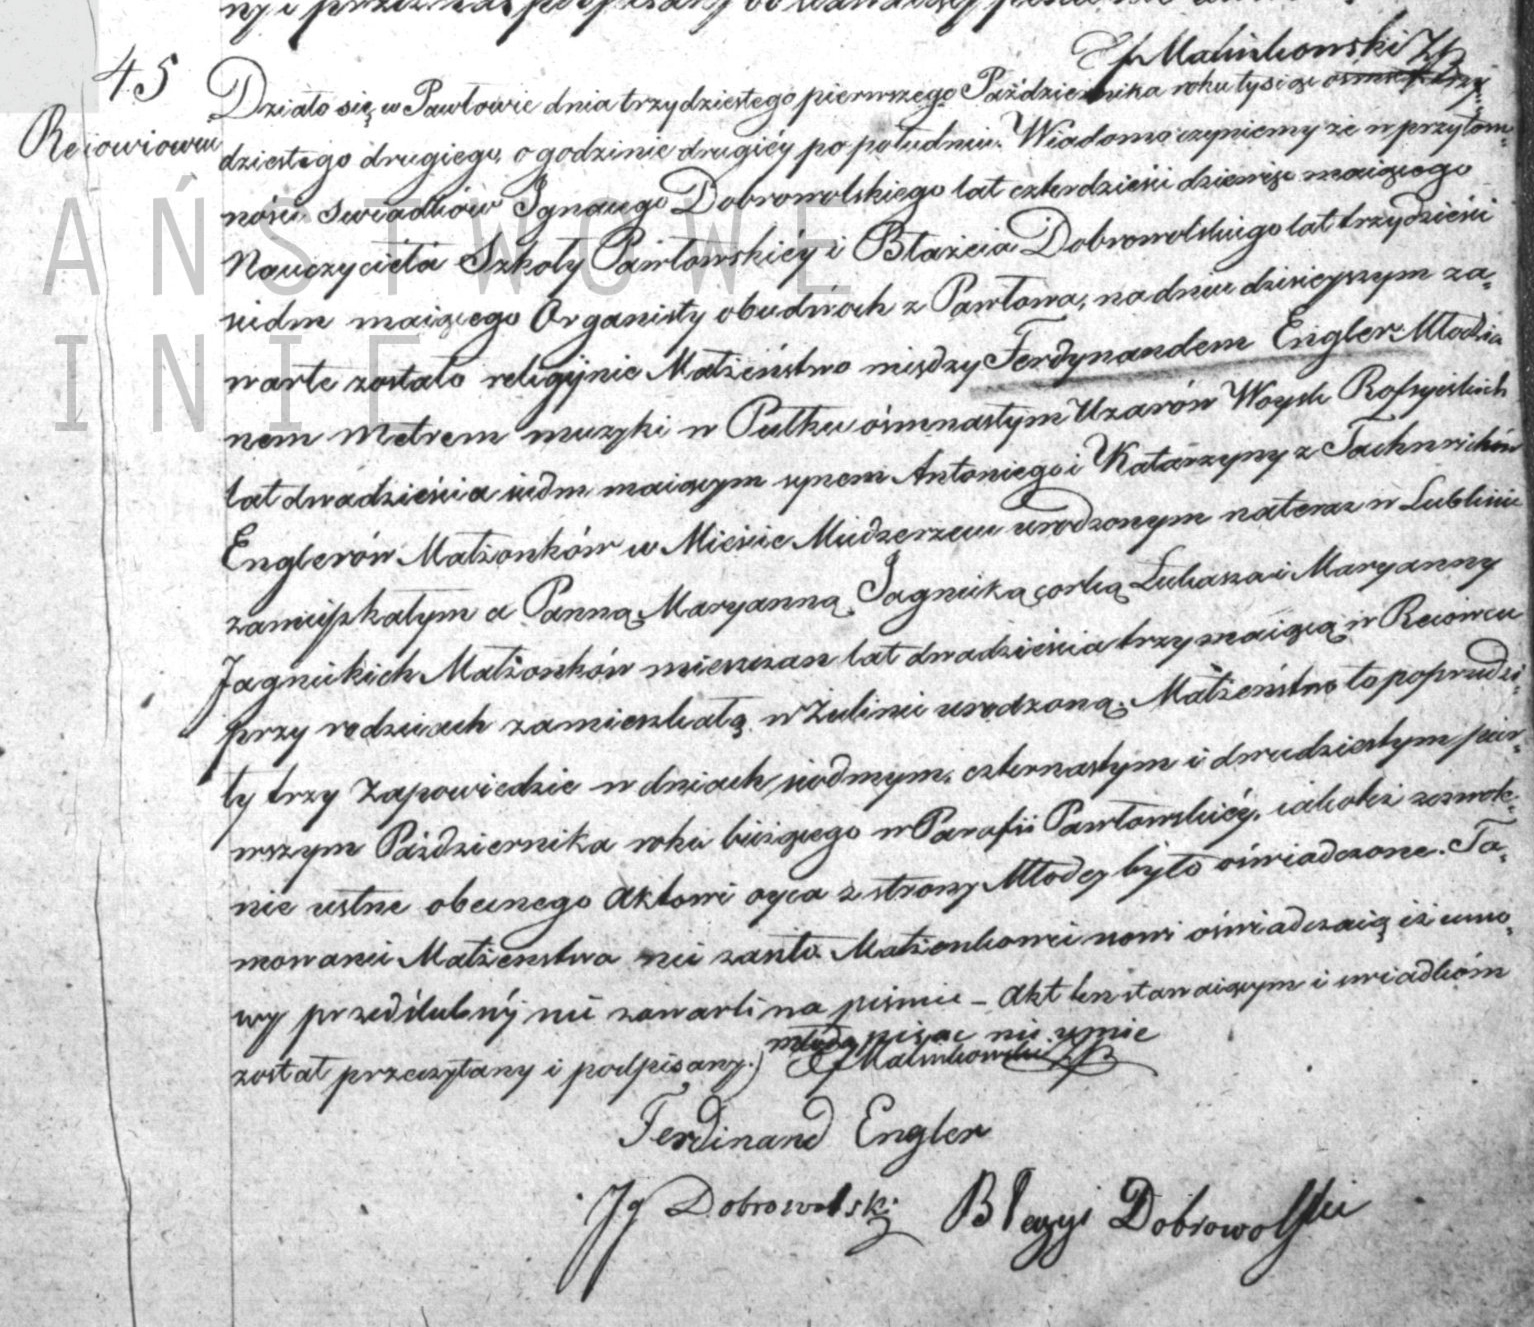 45
Działo się w Pawłowie dnia trzydziestego pierwszego Października roku tysiąc
dziestego drugiego, o godzinie drugiéy po południu. Wiadomo czyniemy że w przytom=
ności swiadków Ignacego Dobrowolskiego lat czterdzieści dziewięć maiącego
Nauczyciela Szkoły Pawłowskiéy i Błażeia Dobrowolskiego lat trzydzieści
siedm maiącego Organisty obudwóch z Pawłowa, na dniu dzisieyszym za=
warte zostało religijnie Małżeństwo między Ferdynandem Engler Młodzia
nem Metrem muzyki w Pułku ośmnastym Uzarów Woysk Rossyiskich
lat dwadzieścia siedm maiącym synem Antoniego i Katarzyny z
Englerów Małżonków w Mieście urodzonym na teraz w Lublinie
zamieszkałym a Panną Maryanną Jagnicką corką Łukasza i Maryanny
Jagnickich Małżonków mieszczan lat dwadzieścia trzy maiącą w Reiowcu
przy rodzicach zamieszkałą w Żulinie urodzoną. Małżeństwo to poprzedzi=
ły trzy Zapowiedzie w dniach siodmym, czternastym i dwudziestym pier=
wszym Października roku bieżącego w Parafii Pawłowskiéy, iakoteż zezwole=
nie ustne obecnego Aktowi oyca z strony Młodey było oświadczone. Ta=
mowanie Małżenstwa nie zaszło. Małżonkowie nowi oświadczaią iż umo=
wy przedślubnéj nie zawarli na piśmie - Akt ten stawaiącym i swiadkóm
został przeczytany i podpisany.) młoda pisac nie umie
Malinkowski
Ferdinand Engler
Jg Dobrowolski Błażyi Dobrowolski